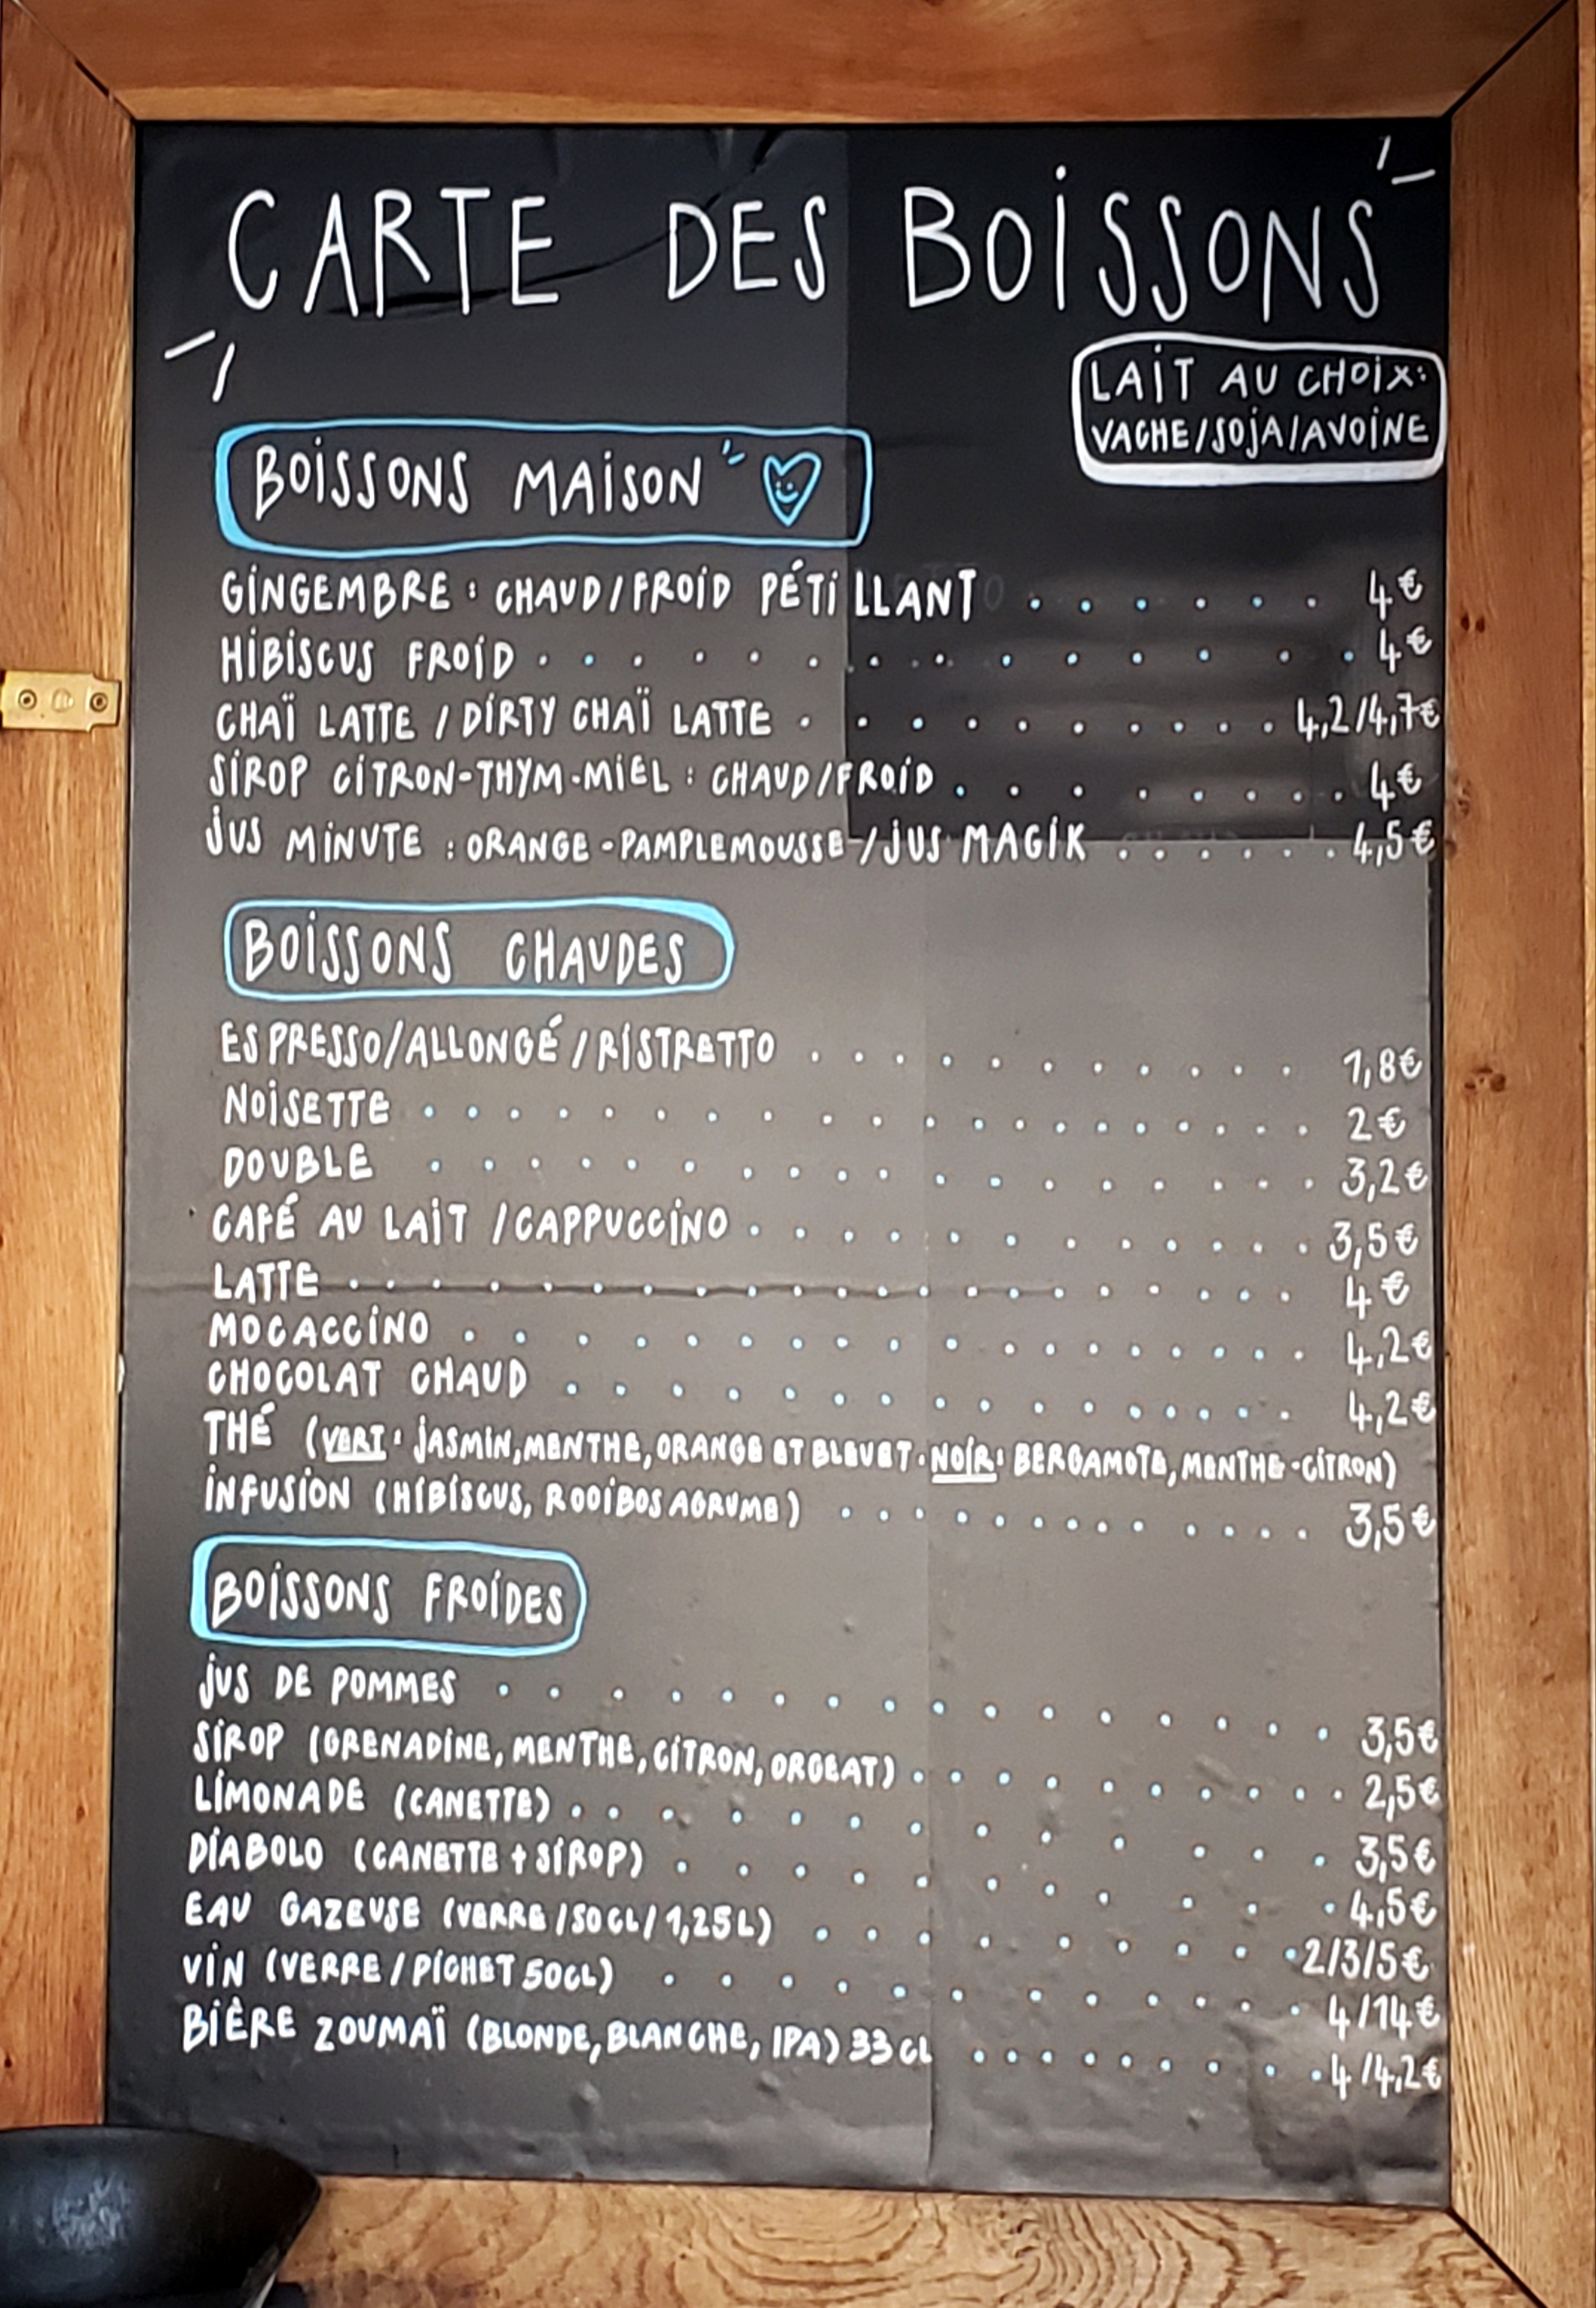 CARTE DES BOISSONS
LAIT AU CHOIX:
VACHE/SOJA/AVOINE
BOISSONS MAISON
GINGEMBRE : CHAUD/FROID PÉTILLANT . . . . . . 4€
HIBISCUS FROID . . . . . . . . . . . . . . 4€
CHAÏ LATTE / DIRTY CHAÏ LATTE . . . . . . . . . . 4,2/4,7€
SIROP CITRON-THYM-MIEL : CHAUD/FROID . . . . . . . . 4€
JUS MINUTE : ORANGE-PAMPLEMOUSSE-/JUS MAGIK . . . . . . 4,5€
BOISSONS CHAUDES
ESPRESSO/ALLONGÉ/RISTRETTO . . . . . . . . . . 1,8€
NOISETTE . . . . . . . . . . . . . . . . . 2€
DOUBLE . . . . . . . . . . . . . . . . 3,2€
CAFÉ AU LAIT /CAPPUCCINO . . . . . . . . . . . 3,5€
LATTE . . . . . . . . . . . . . . . . . . 4€
MOCACCINO . . . . . . . . . . . . . . . 4,2€
CHOCOLAT CHAUD . . . . . . . . . . . . . . 4,2€
THÉ (VERT : JASMIN, MENTHE, ORANGE ET BLEUET · NOIR : BERGAMOTE, MENTHE-CITRON)
INFUSION (HIBISCUS, ROOIBOS AGRUME) . . . . . . . . . . . 3,5€
BOISSONS FROIDES
JUS DE POMMES . . . . . . . . . . . . . . . 3,5€
SIROP (GRENADINE, MENTHE, CITRON, ORGEAT) . . . . . . . . . . 2,5€
LIMONADE (CANETTE) . . . . . . . . . . . . 3,5€
DIABOLO (CANETTE + SIROP) . . . . . . . . . . 4,5€
EAU GAZEUSE (VERRE/50CL/1,25L) . . . . . . . . . 2/3/5€
VIN (VERRE/PICHET 50CL) . . . . . . . . . . . 4/14€
BIÈRE ZOUMAÏ (BLONDE, BLANCHE, IPA) 33CL . . . . . . . . . 4/4,2€